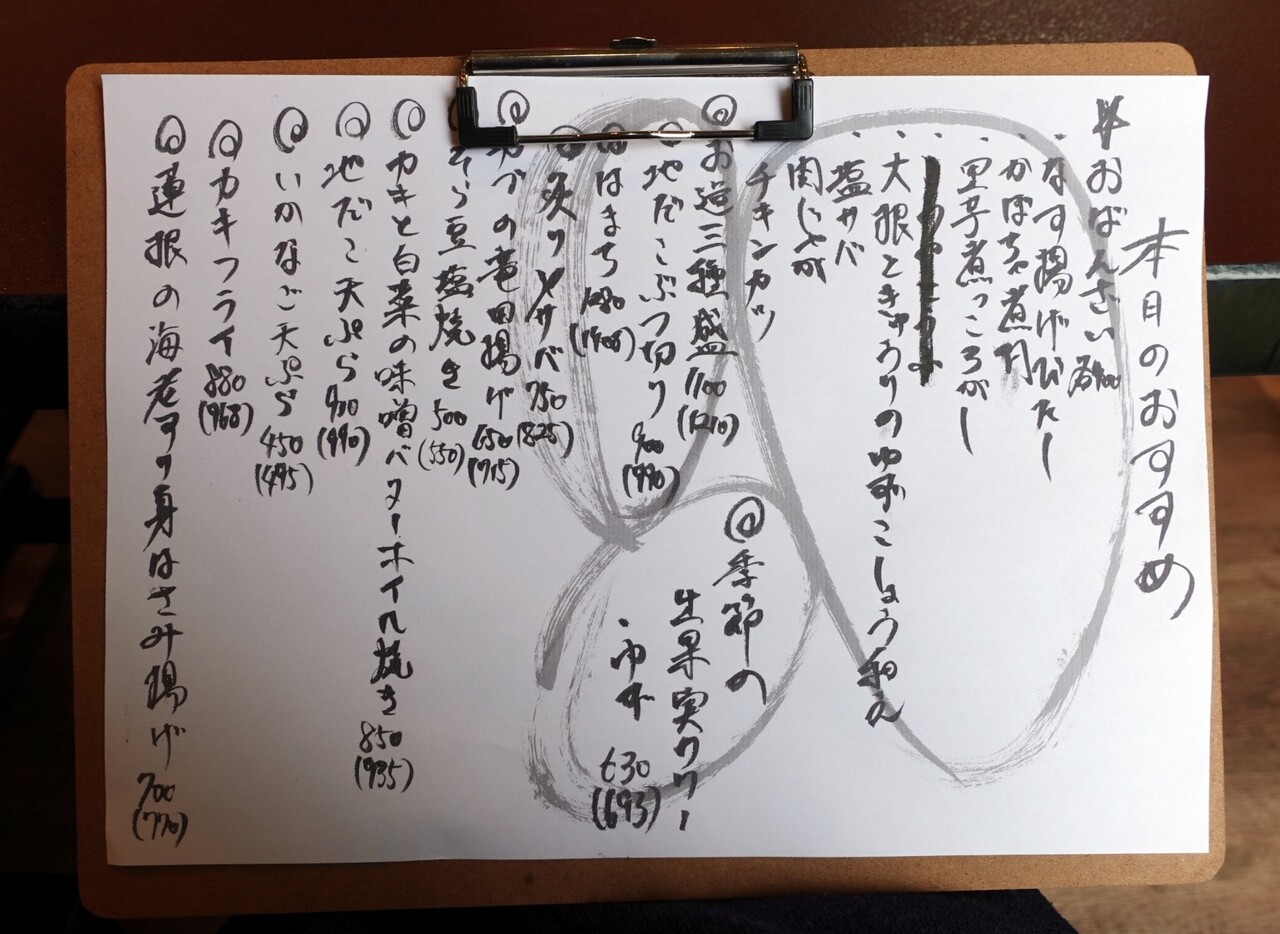 本日のおすすめ
おばんざい 各400
・なす揚げびたし
・かぼちゃ煮付
・里芋煮っころがし
・大根ときゅうりのゆずこしょう和え
・塩サバ
肉じゃが
チキンカツ
お造三種盛 1100 (1210)
地だこぶつ切り 900 (990)
はまち
炙り〆サバ 750 (825)
の竜田揚げ 650 (715)
そら豆塩焼き 500 (550)
カキと白菜の味噌バターホイル焼き 850 (935)
地だこ天ぷら 900 (990)
いかなご天ぷら 450 (495)
カキフライ 880 (968)
蓮根の海老すり身はさみ揚げ 700 (770)
季節の
生果実サワー
・ゆず 630 (693)